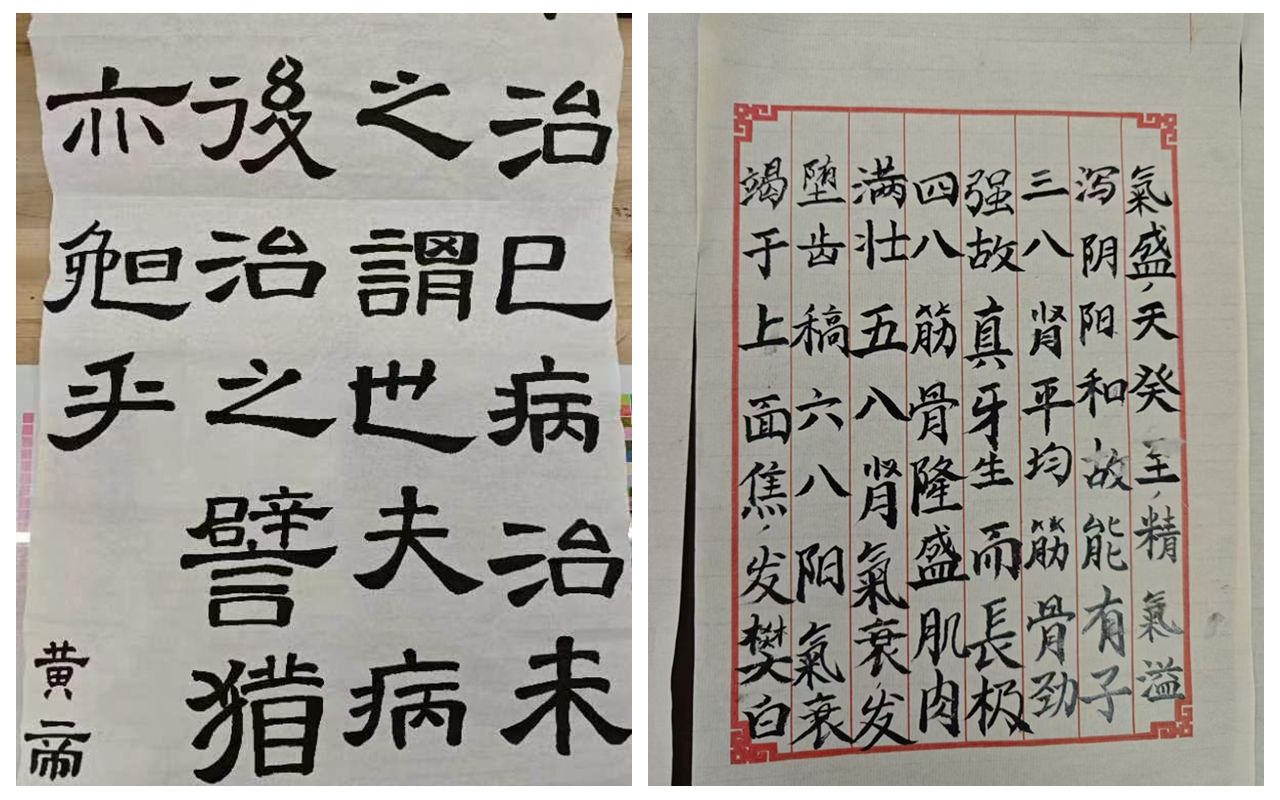 治巳病治未
之謂也夫病
後治之譬猶
亦晚乎
黄帝
氣盛，天癸至，精氣溢
泻阴阳和故能有子
三八肾平均筋骨劲
强故真牙生而長极
四八筋骨隆盛肌肉
满壮五八肾氣衰，发
堕齿稿六八阳氣衰
竭于上面焦，发樊白